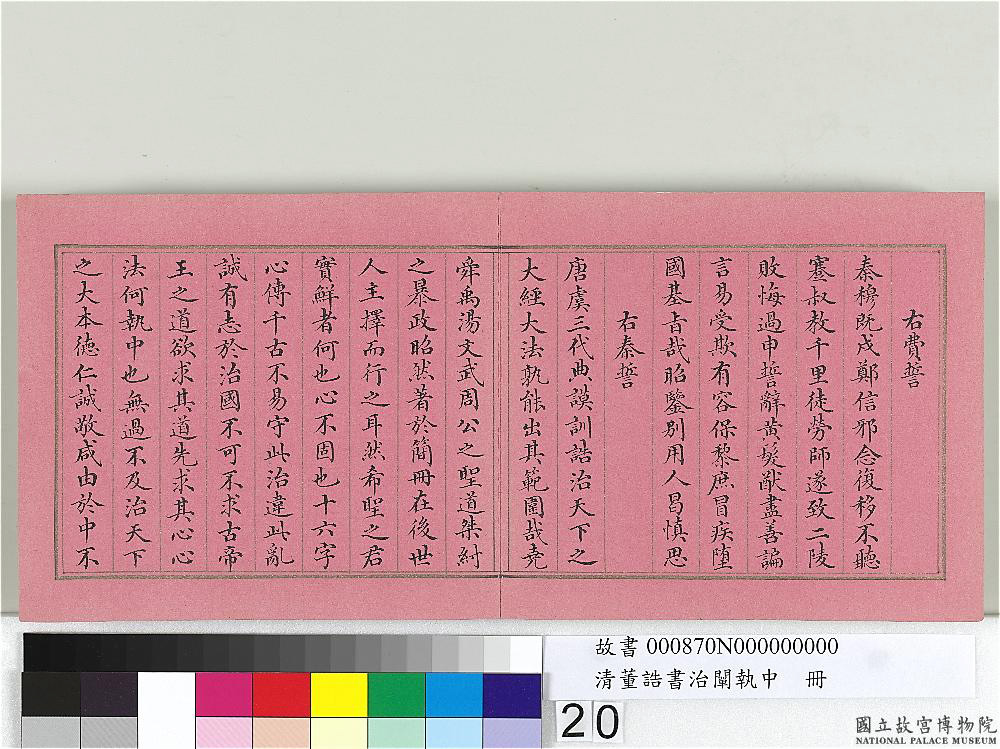 右費誓
秦穆既戍鄭信邪念復移不聽
蹇叔教千里徒勞師遂致二陵
敗悔過申誓辭黃髮猷盡善諞
言易受欺有容保黎庶冒疾墮
國基旨哉昭鑒別用人昌慎思
右秦誓
唐虞三代典謨訓誥治天下之
大經大法孰能出其範圍哉堯
舜禹湯文武周公之聖道桀紂
之暴政昭然著於簡冊在後世
人主擇而行之耳然希聖之君
實鮮者何也心不固也十六字
心傳千古不易守此治違此亂
誠有志於治國不可不求古帝
王之道欲求其道先求其心心
法何執中也無過不及治天下
之大本德仁誠敬咸由於中不
故書 000870N000000000
清董誥書治闡執中 冊
20
國立故宮博物院
NATIONAL PALACE MUSEUM